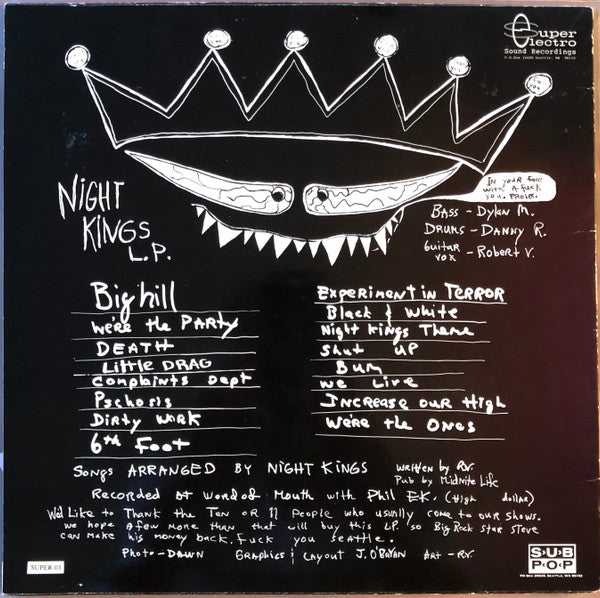 Super
Electro
Sound Recordings
In your face
with a fuck
you. Prole.
NIGHT
KINGS
L.P.
BASS - DYLAN M.
DRUMS - DANNY R.
Guitar
vox - ROBERT V.
Big hill
We're the PARTY
DEATH
Little DRAG
Complaints Dept
Pschosis
Dirty Work
6th Foot
EXPERIMENT IN TERROR
Black & White
Night Kings Theme
Shut UP
Bum
We Live
Increase our High
We're the Ones
Songs ARRANGED BY NIGHT KINGS written by R.V.
Pub by Midnite Life
Recorded at word of Mouth with Phil EK. (High dollar)
We'd Like to Thank the Ten or 11 People who usually come to our shows.
we hope a few more than that will buy this LP. so Big Rock Star Steve
can make his money back. Fuck you Seattle.
Photo - DAWN Graphics & Layout J. O'BRYAN Art - R.V.
SUPER 03
SUB
POP